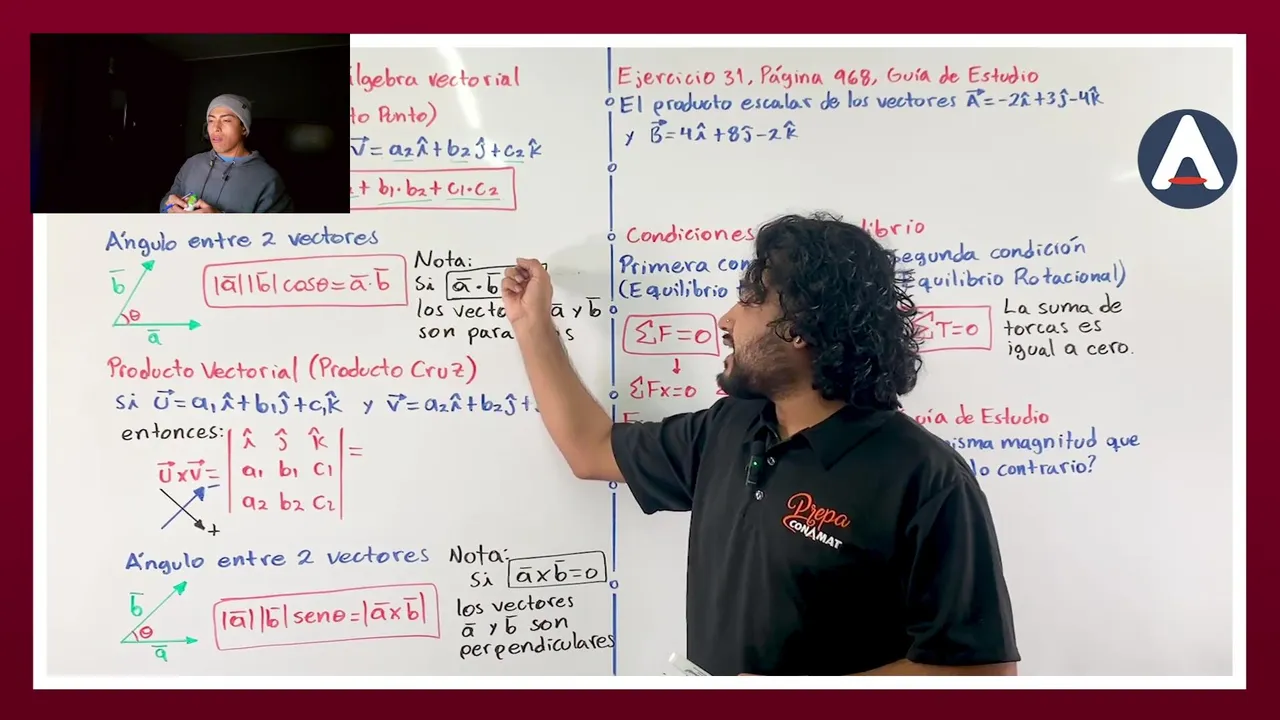 álgebra vectorial
Punto)
V⃗=a₂î+b₂ĵ+c₂k̂
+ b₁·b₂+c₁·c₂
Ángulo entre 2 vectores
b̄
θ
ā
|ā||b̄|cosθ=ā·b̄
Nota:
Si ā·b̄
los ā y b̄
son
Producto Vectorial (Producto Cruz)
si U⃗=a₁î+b₁ĵ+c₁k̂ y V⃗=a₂î+b₂ĵ+
entonces:
U⃗xV⃗= | î ĵ k̂ | =
a₁ b₁ c₁
a₂ b₂ c₂
−
+
Ángulo entre 2 vectores
b̄
θ
ā
|ā||b̄|senθ=|āxb̄|
Nota:
Si āxb̄=0
los vectores
ā y b̄ son
perpendiculares
Ejercicio 31, Página 968, Guía de Estudio
El producto escalar de los vectores A⃗=-2î+3ĵ-4k̂
y B⃗=4î+8ĵ-2k̂
Condiciones
Primera
(Equilibrio
ΣF=0
↓
ΣFx=0
segunda condición
Equilibrio Rotacional)
ΣT=0
La suma de
torcas es
igual a cero.
de Estudio
misma magnitud que
lo contrario?
Prepa
CONAMAT
A